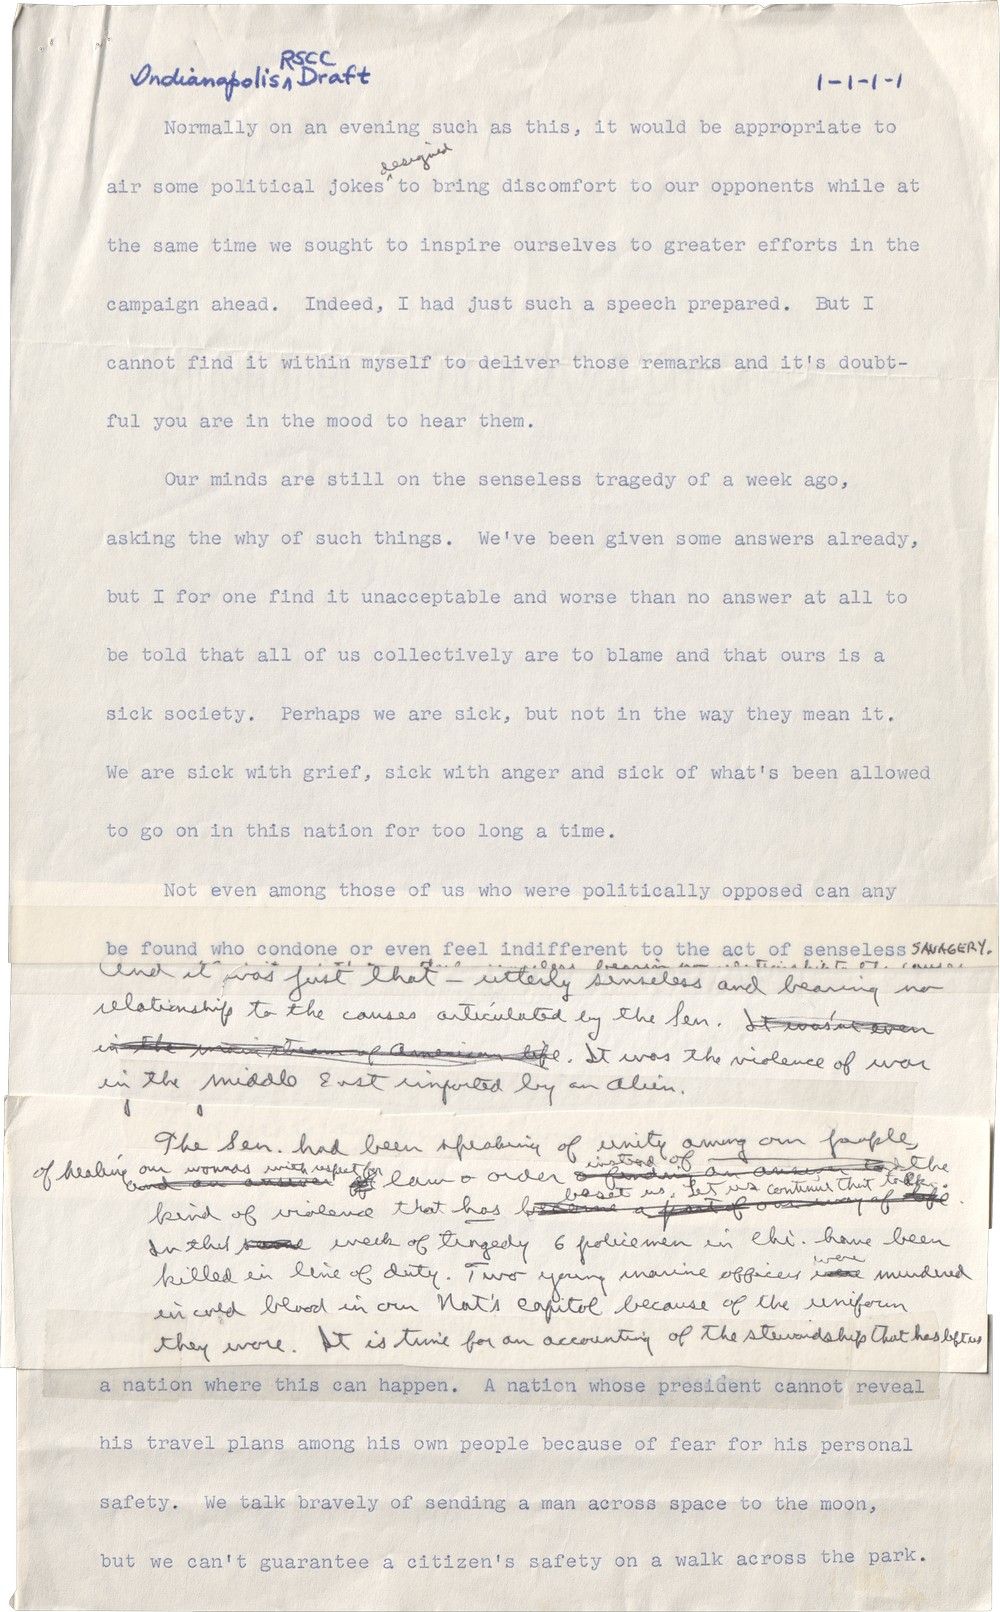 Indianapolis RSCC Draft 1-1-1-1
Normally on an evening such as this, it would be appropriate to
air some political jokes designed to bring discomfort to our opponents while at
the same time we sought to inspire ourselves to greater efforts in the
campaign ahead. Indeed, I had just such a speech prepared. But I
cannot find it within myself to deliver those remarks and it's doubt-
ful you are in the mood to hear them.
Our minds are still on the senseless tragedy of a week ago,
asking the why of such things. We've been given some answers already,
but I for one find it unacceptable and worse than no answer at all to
be told that all of us collectively are to blame and that ours is a
sick society. Perhaps we are sick, but not in the way they mean it.
We are sick with grief, sick with anger and sick of what's been allowed
to go on in this nation for too long a time.
Not even among those of us who were politically opposed can any
be found who condone or even feel indifferent to the act of senseless SAVAGERY.
And it was just that – utterly senseless and bearing no
relationship to the causes articulated by the Sen. It wasn't even
in the main stream of American life. It was the violence of war
in the middle East imported by an alien.
The Sen. had been speaking of unity among our people,
of healing our wounds with respect for law & order instead of the
kind of violence that has beset us. Let us continue that
In this week of tragedy 6 policemen in Chi. have been
killed in line of duty. Two young marine officers were murdered
in cold blood in our Nat's capitol because of the uniform
they wore. It is time for an accounting of the stewardship that has left us
a nation where this can happen. A nation whose president cannot reveal
his travel plans among his own people because of fear for his personal
safety. We talk bravely of sending a man across space to the moon,
but we can't guarantee a citizen's safety on a walk across the park.